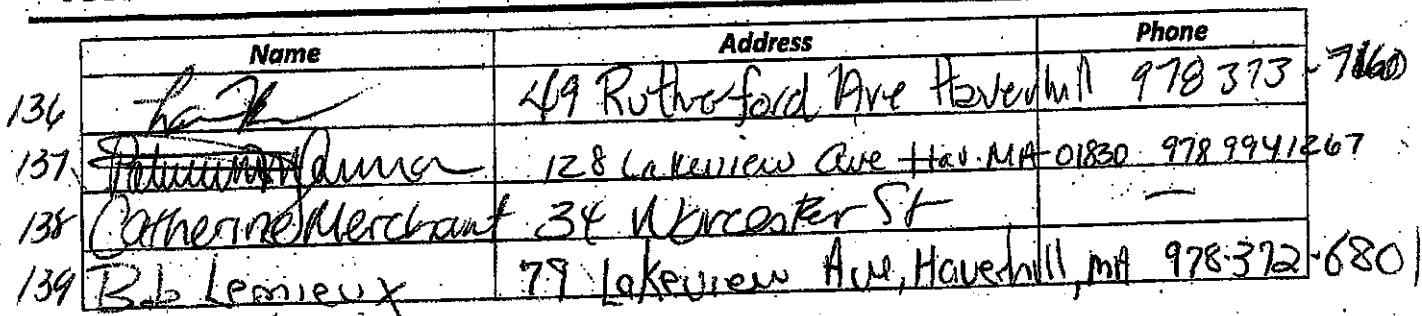 Name Address Phone
136 49 Rutherford Ave Haverhill 978 373-7160
137 128 Lakeview Ave Hav. MA 01830 978 994 1267
138 Catherine Merchant 34 Worcester St —
139 Bob Lemieux 79 Lakeview Ave, Haverhill, MA 978-372-6801